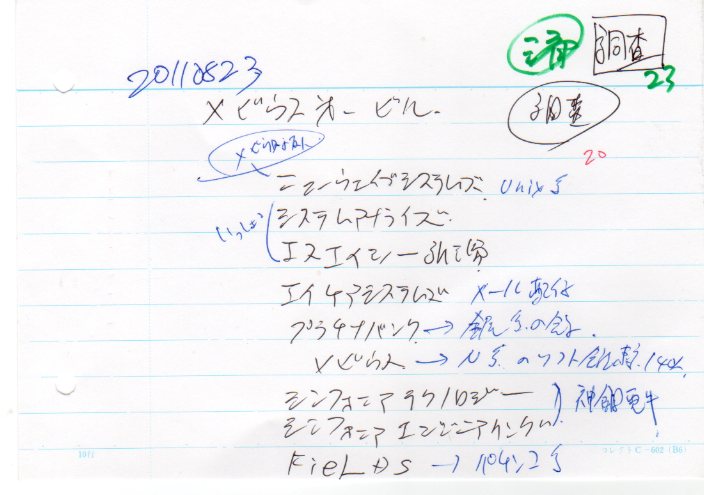 済 調査
23
20110823
メビウスオービル
調査
20
メビウス
ニューウェイブシステムズ Unix系
いっしょ
システムアナライズ
エスエイシー
エイケアシステムズ メール配信
プラチナバンク → 銀系の会社
メビウス → N系のソフト会社
シンフォニアテクノロジー
シンフォニアエンジニアリング 神鋼電キ
FieLDs → パチンコ系
10行 コレクト C-602 (B6)